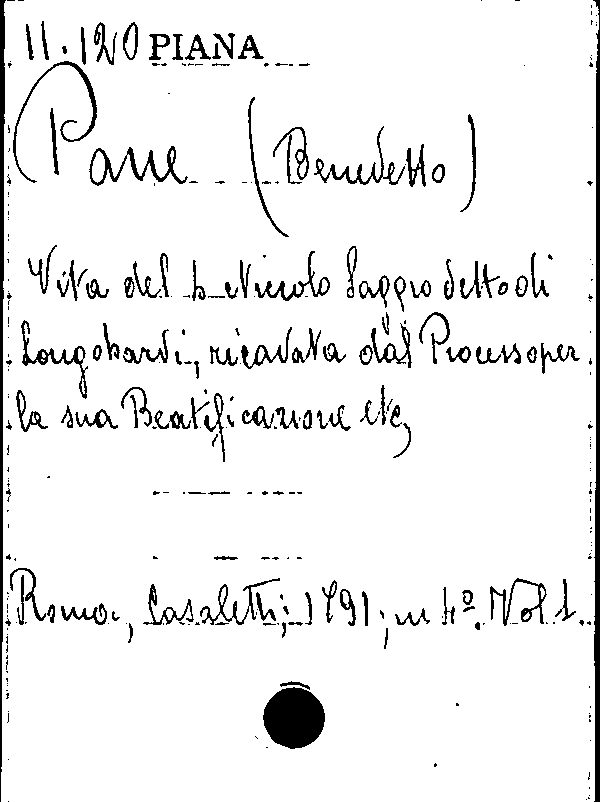 11.120 PIANA
Pane (Benedetto)
Vita del b Niccolo Saggio detto di
Longobardi, ricavata dal Processo per
la sua Beatificazione etc,
Roma, Casaletti; 1791; in 4º. Vol 1.